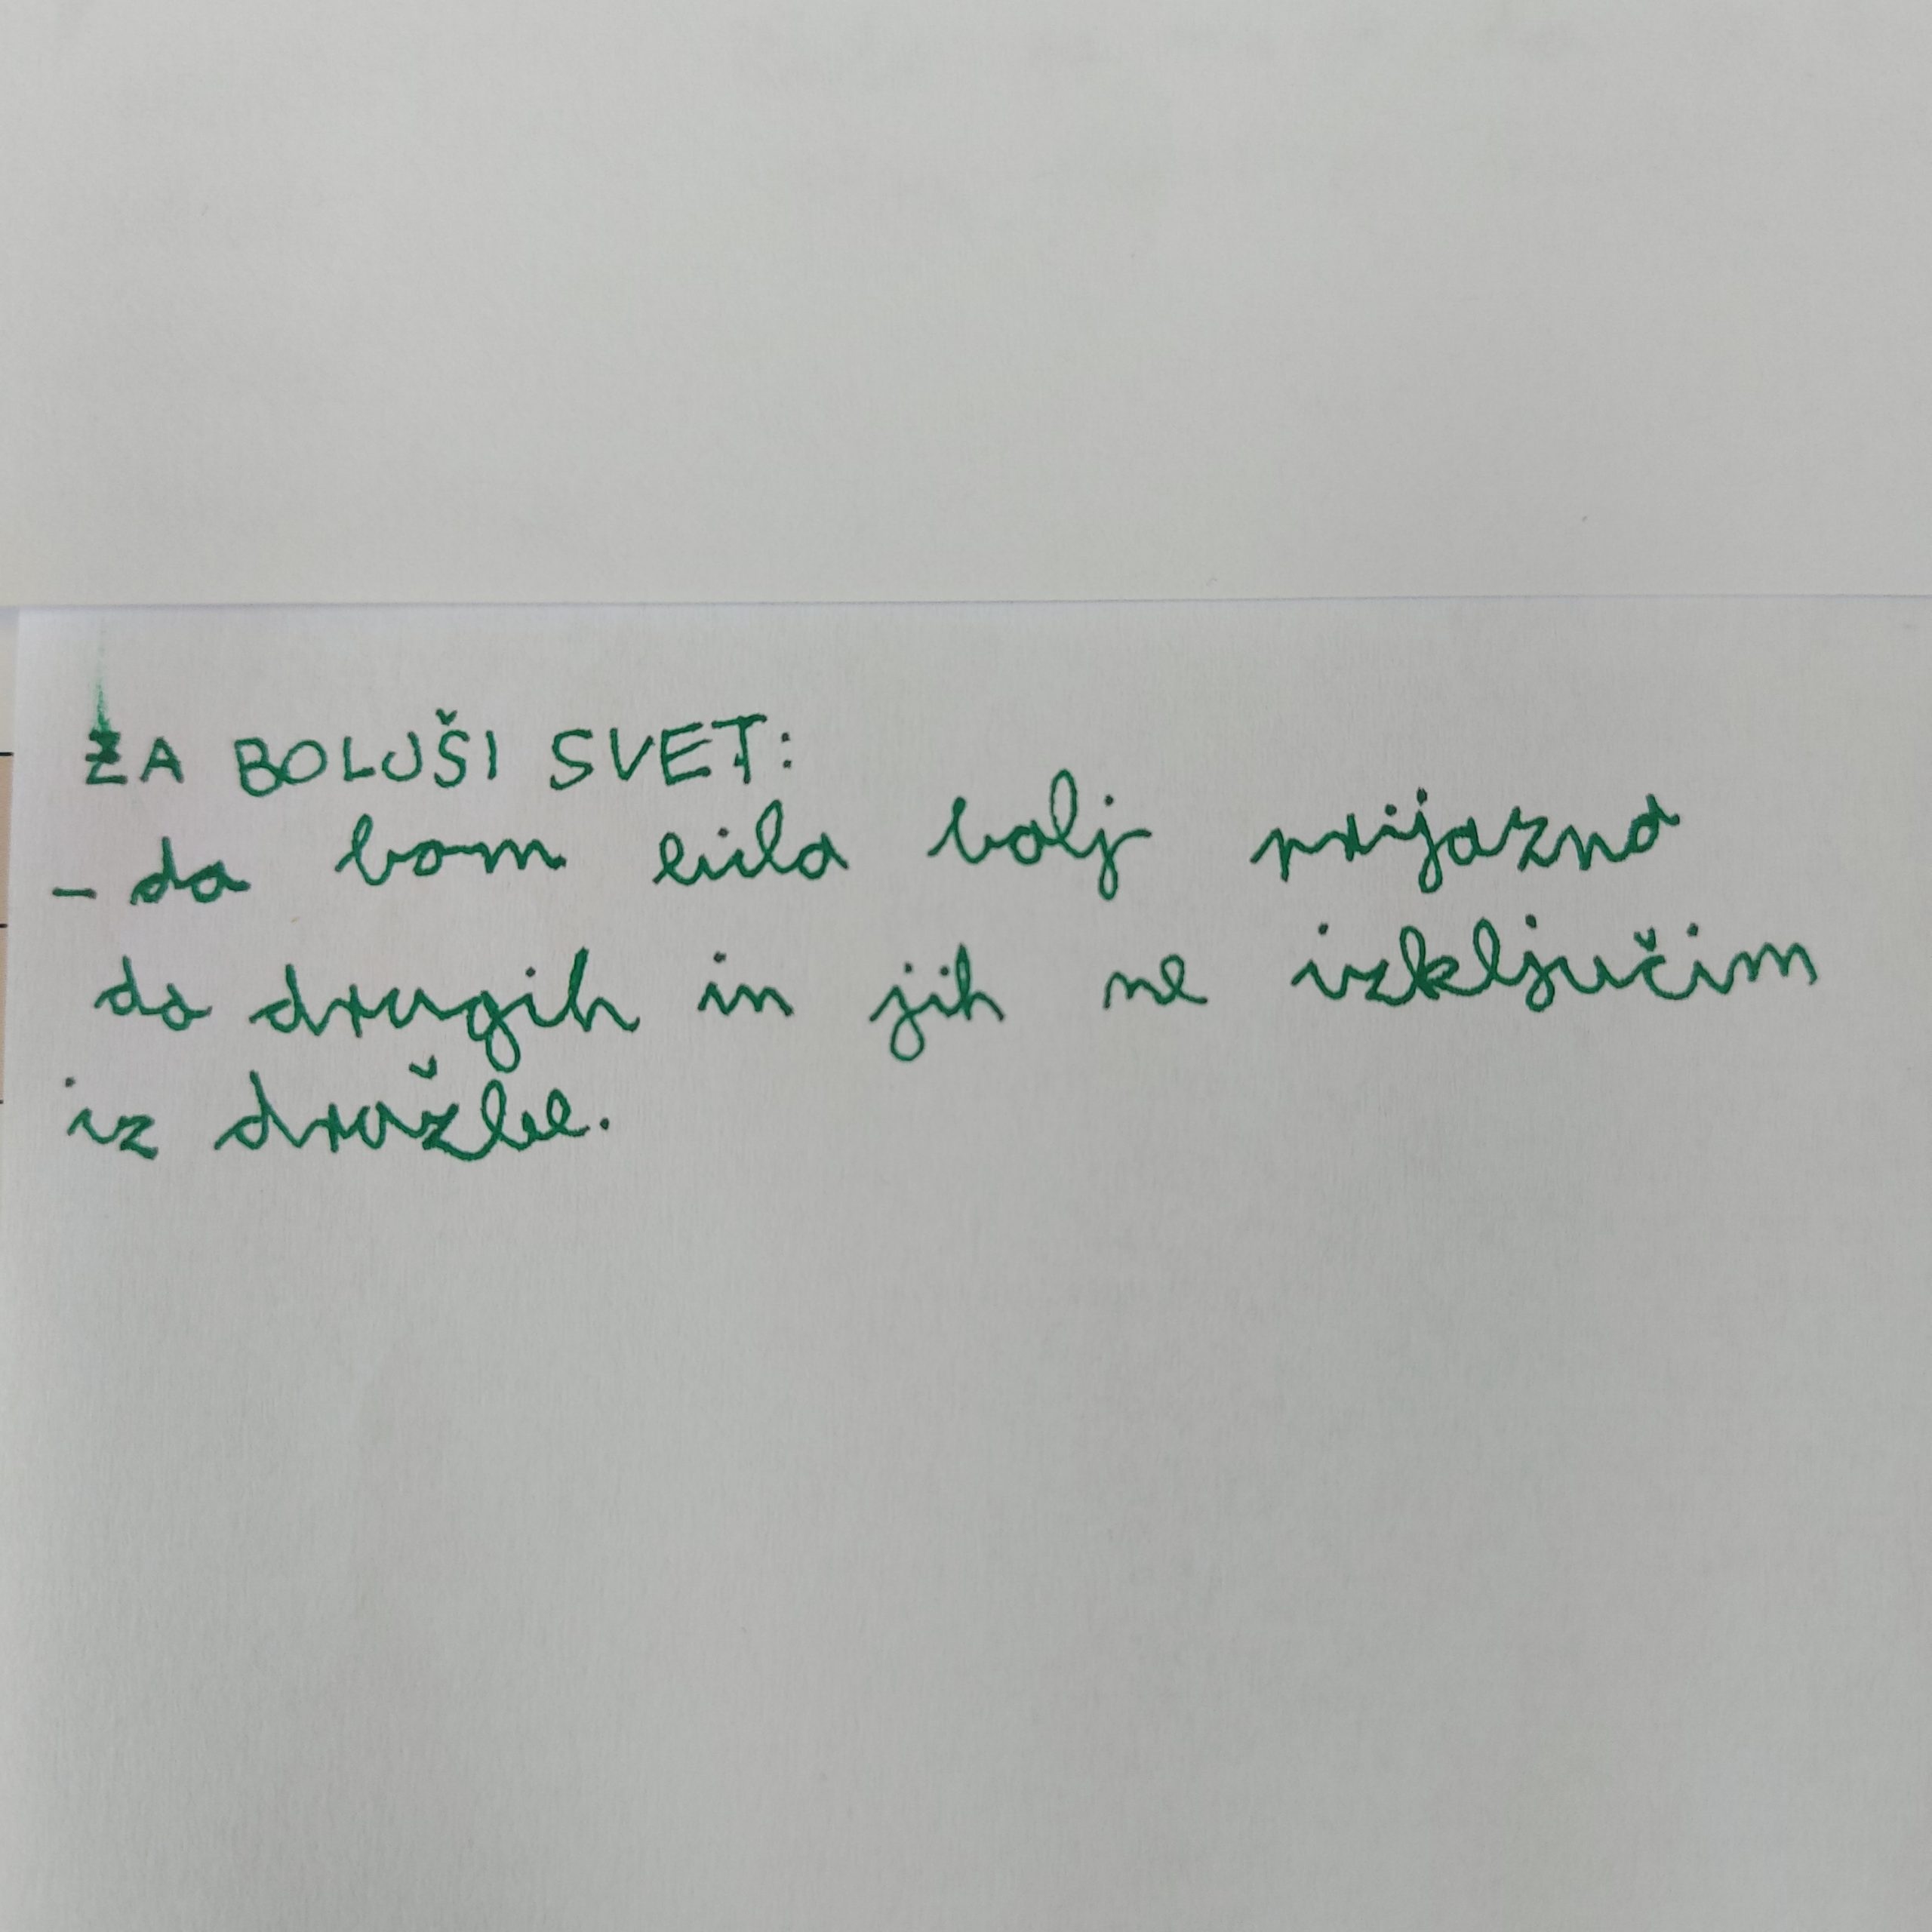 ZA BOLJŠI SVET:
- da bom bila bolj prijazna
do drugih in jih ne izključim
iz družbe.